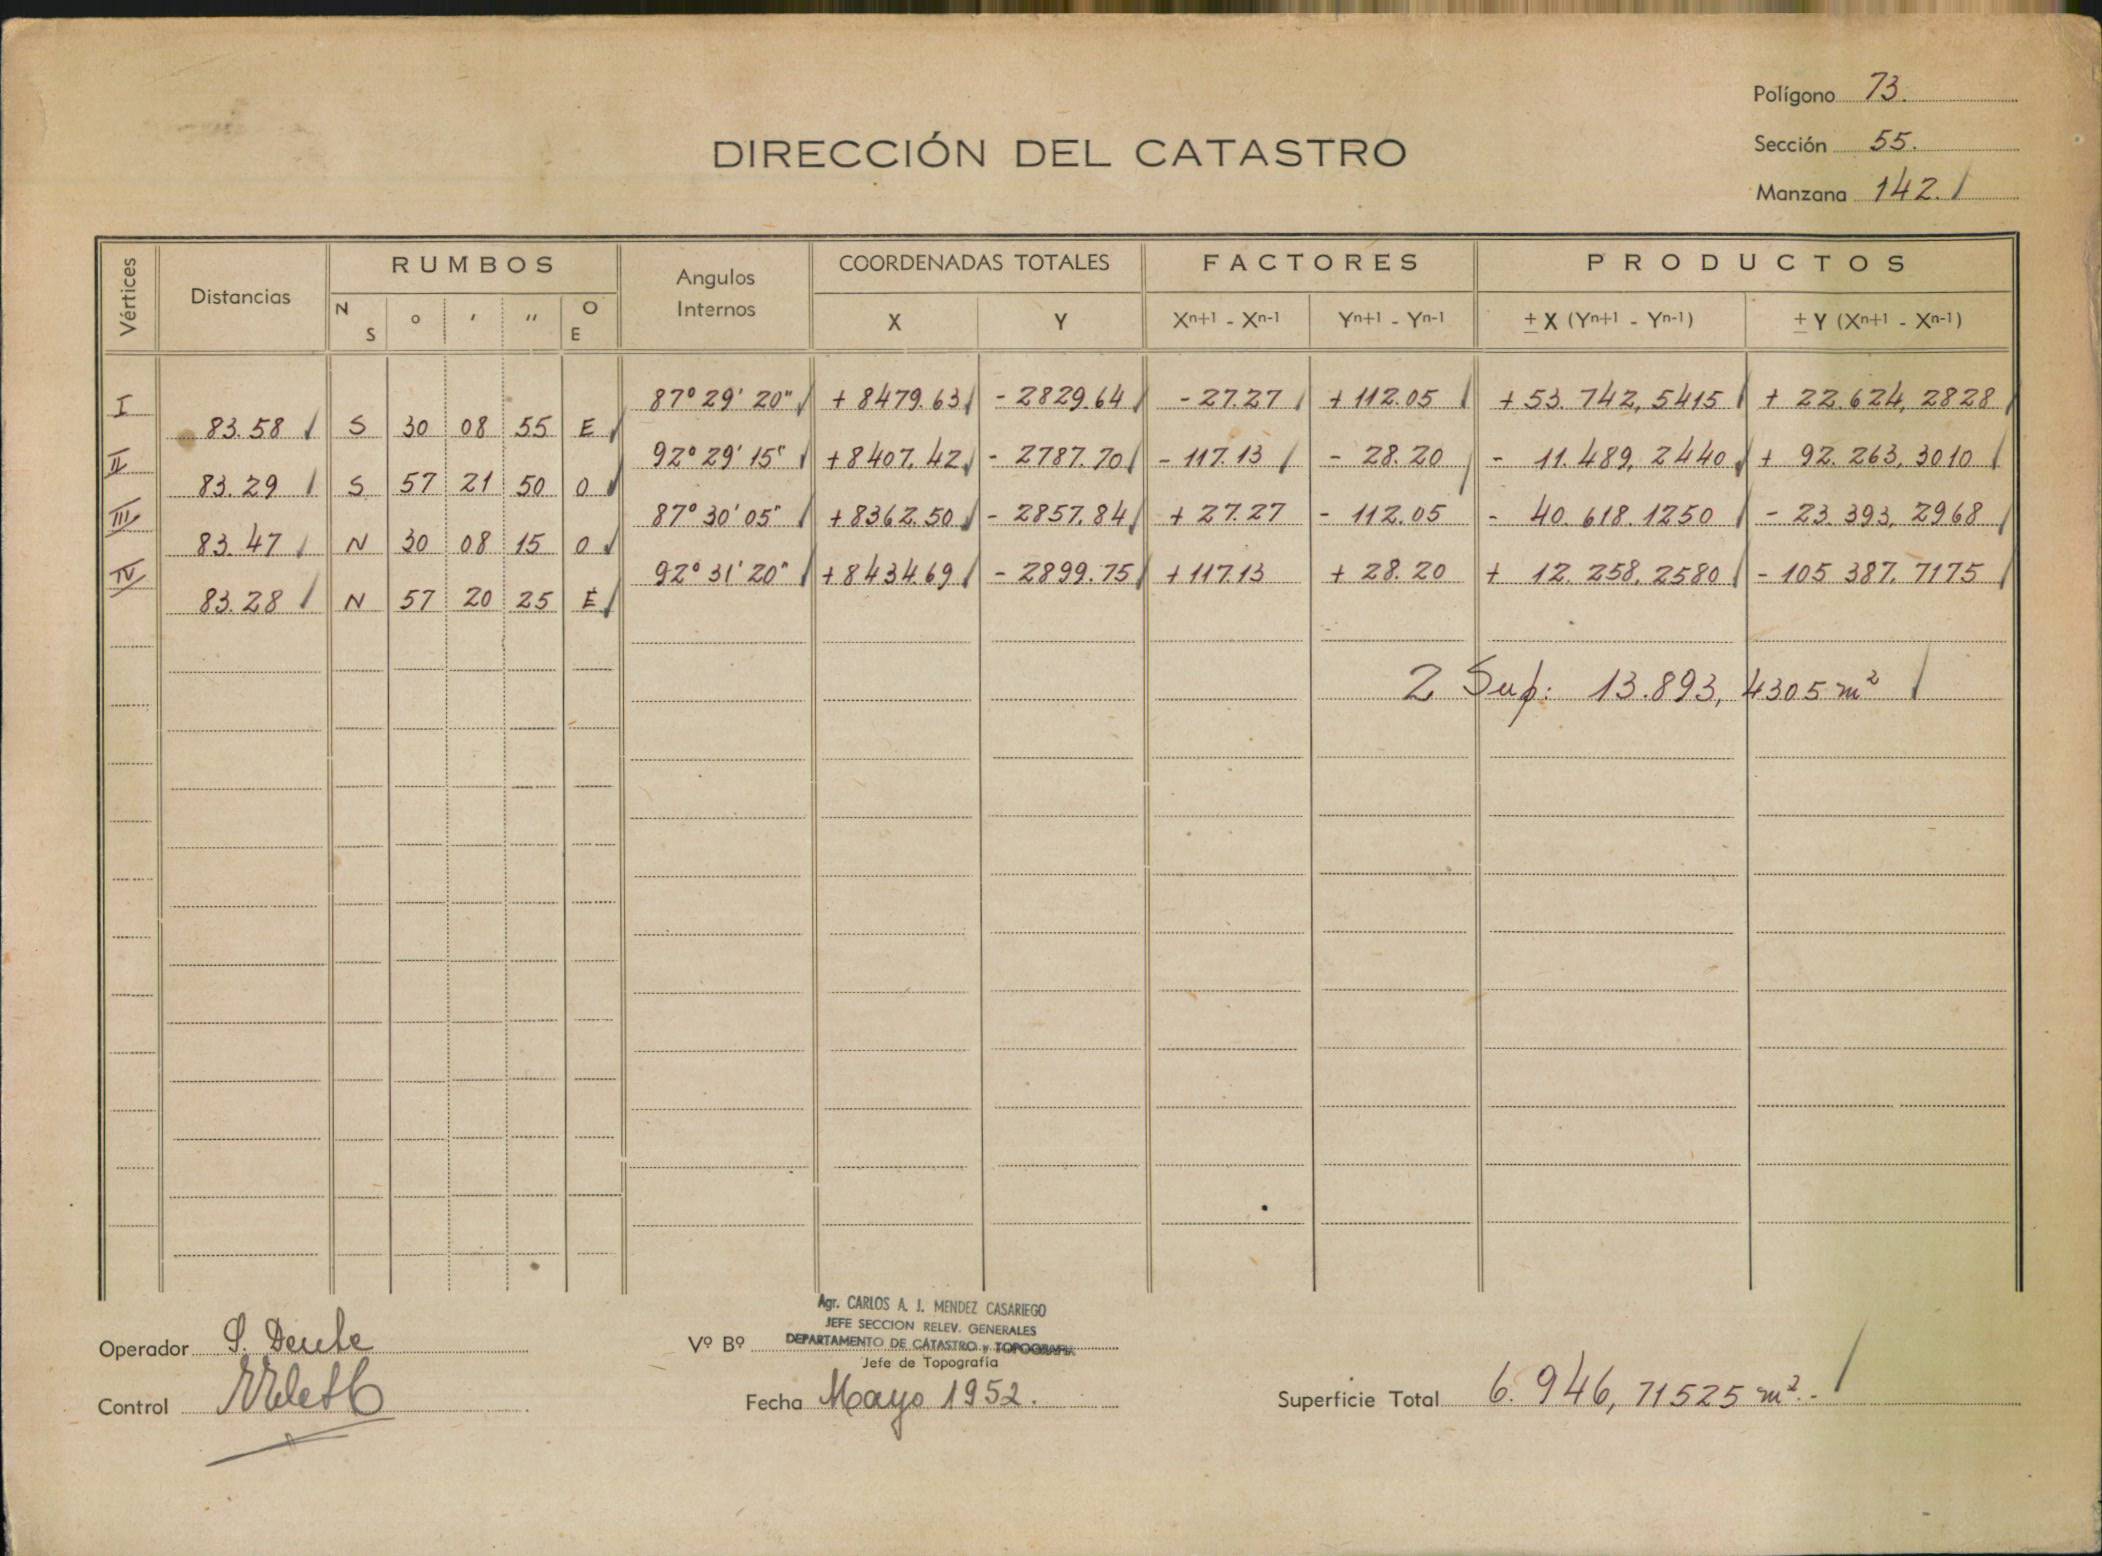 Polígono 73.
DIRECCIÓN DEL CATASTRO
Sección 55.
Manzana 142.
Vértices
Distancias
RUMBOS
N S
° ' "
O E
Angulos Internos
COORDENADAS TOTALES
X Y
FACTORES
Xn+1 - Xn-1 Yn+1 - Yn-1
PRODUCTOS
± X (Yn+1 - Yn-1) ± Y (Xn+1 - Xn-1)
I 87° 29' 20" + 8479.63 - 2829.64 - 27.27 + 112.05 + 53.742,5415 + 22.624,2828
83.58 S 30 08 55 E
II 92° 29' 15" + 8407.42 - 2787.70 - 117.13 - 28.20 - 11.489,2440 + 92.263,3010
83.29 S 57 21 50 O
III 87° 30' 05" + 8362.50 - 2857.84 + 27.27 - 112.05 - 40.618.1250 - 23.393,2968
83.47 N 30 08 15 O
IV 92° 31' 20" + 8434.69 - 2899.75 + 117.13 + 28.20 + 12.258,2580 - 105.387.7175
83.28 N 57 20 25 E
2 Sup: 13.893,4305 m²
Agr. CARLOS A. J. MENDEZ CASARIEGO
JEFE SECCION RELEV. GENERALES
Operador S. Deube
Vº Bº DEPARTAMENTO DE CATASTRO y TOPOGRAFIA
Jefe de Topografía
Control
Fecha Mayo 1952.
Superficie Total 6.946,71525 m².-